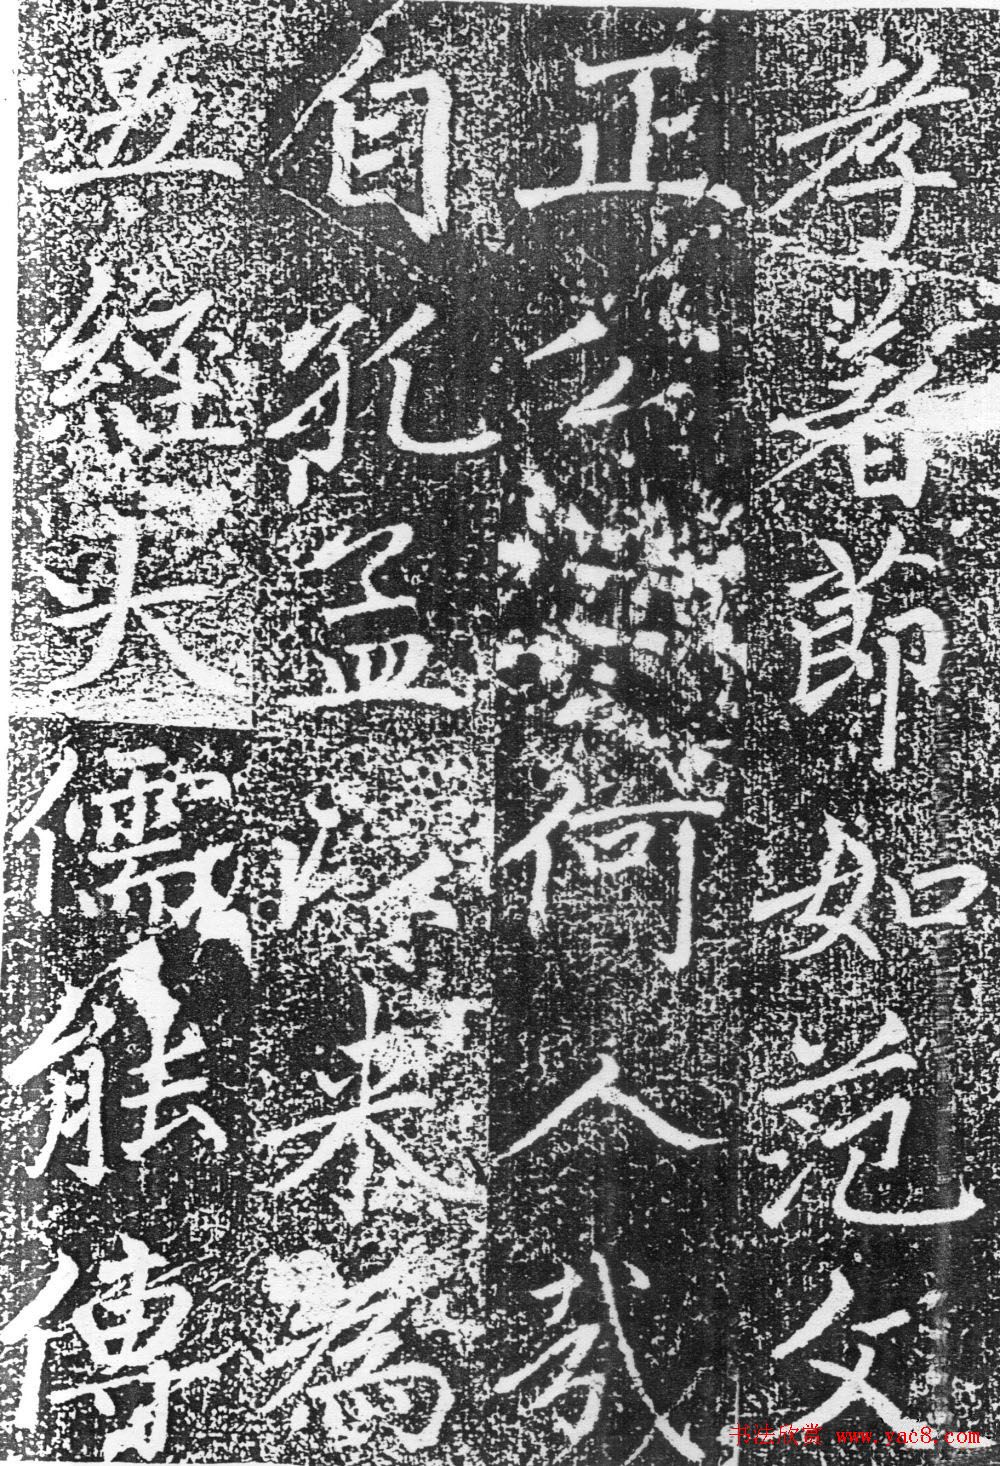 孝者節如范文
正公何人哉
自孔孟以来為
五經大儒能傳
书法欣赏 www.yac8.com